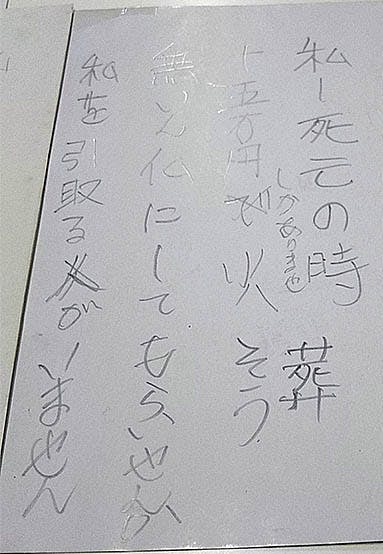 私し死亡の時 葬
しかありません
十五万円 火そう
無えん仏にしてもらいませんか
私を引取る人がいません